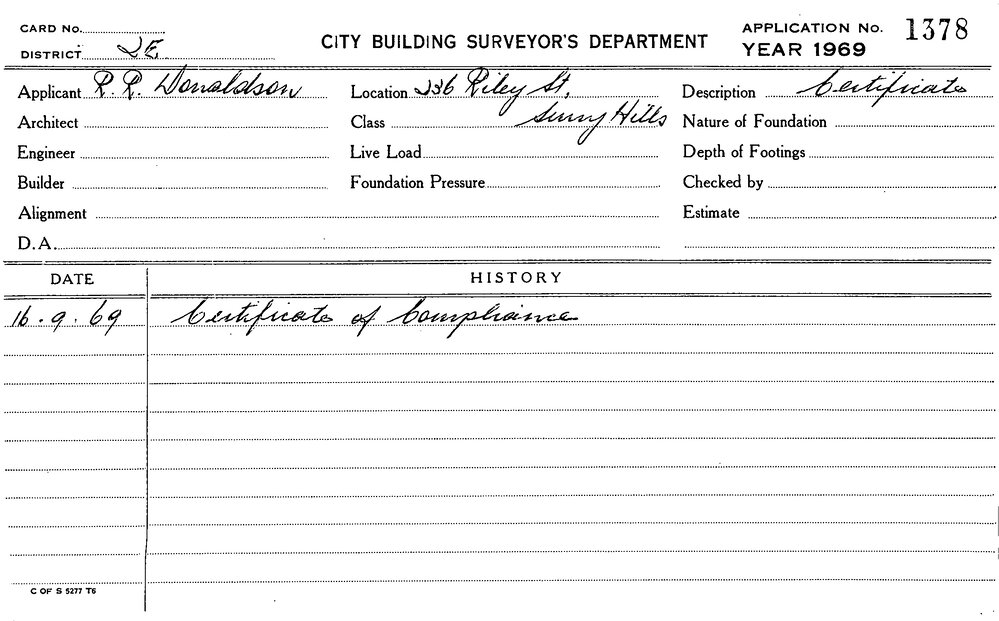 CARD No.
DISTRICT 2E
CITY BUILDING SURVEYOR'S DEPARTMENT
APPLICATION No. 1378
YEAR 1969
Applicant R. R. Donaldson Location 236 Riley St, Description Certificate
Architect Class Surry Hills Nature of Foundation
Engineer Live Load Depth of Footings
Builder Foundation Pressure Checked by
Alignment Estimate
D.A.
DATE HISTORY
16.9.69 Certificate of Compliance
C OF S 5277 T6